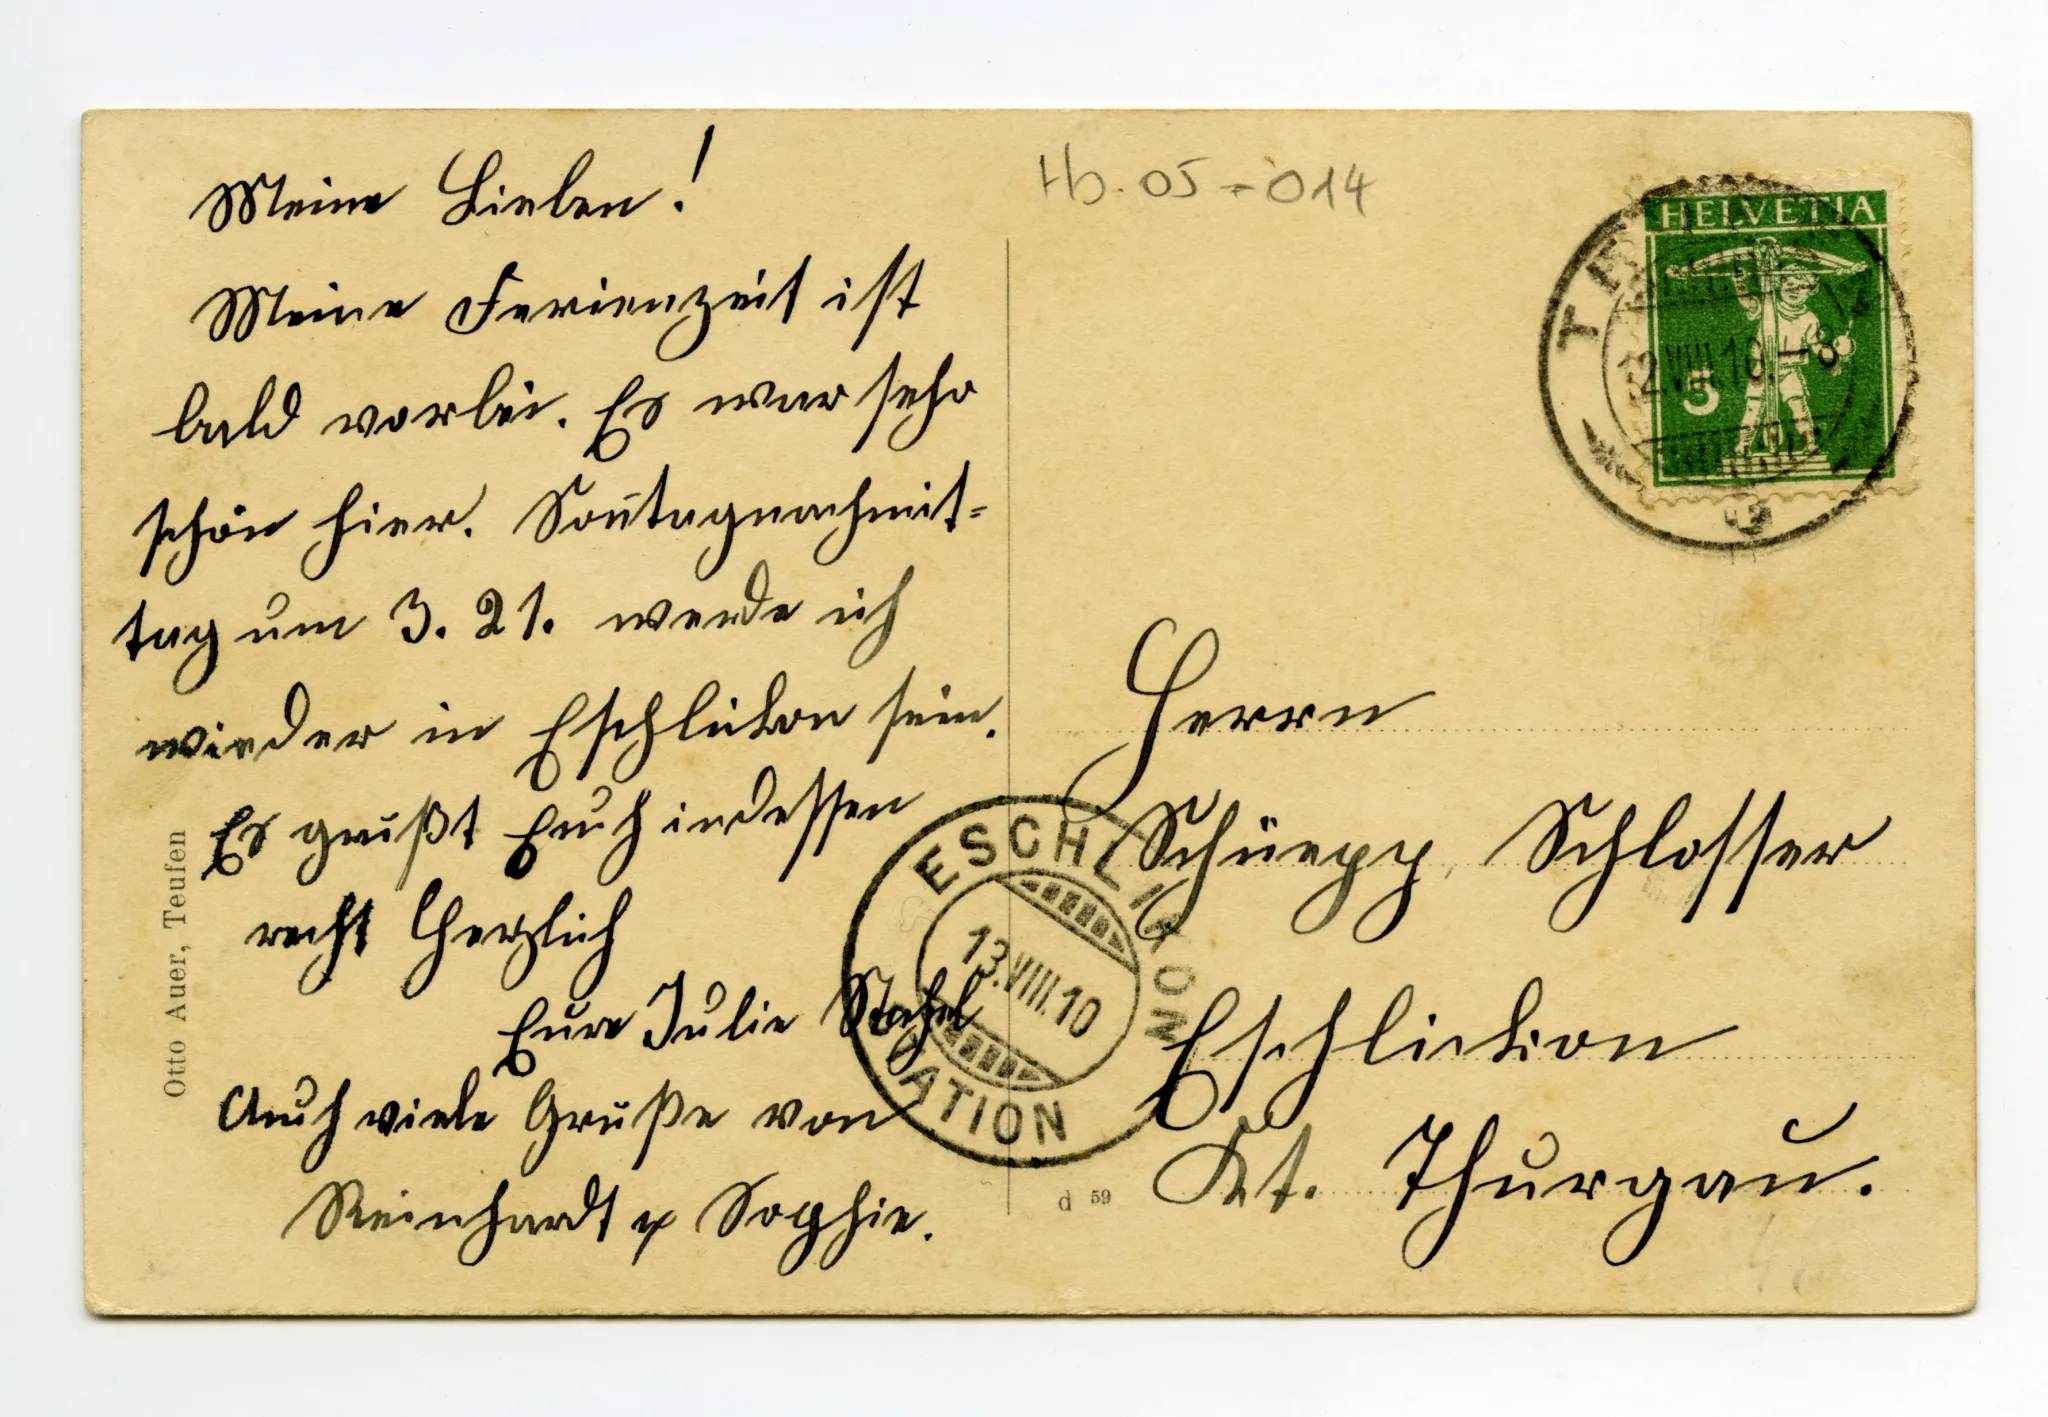 Meine Lieben!
Meine Ferienzeit ist
bald vorbei. Es war sehr
schön hier. Soñtagnachmit-
tag um 3.21. werde ich
wieder in Eschlikon sein.
Es grüßt Euch indessen
recht herzlich
Eure Julie Stahel
Auch viele Grüße von
Reinhardt & Sophie.
Otto Auer, Teufen
Hb. 05-014
HELVETIA
5
12.VIII.10.-8
ESCHLIKON
13.VIII.10
STATION
Herrn
Schüepp, Schlosser
Eschlikon
Kt. Thurgau.
d 59